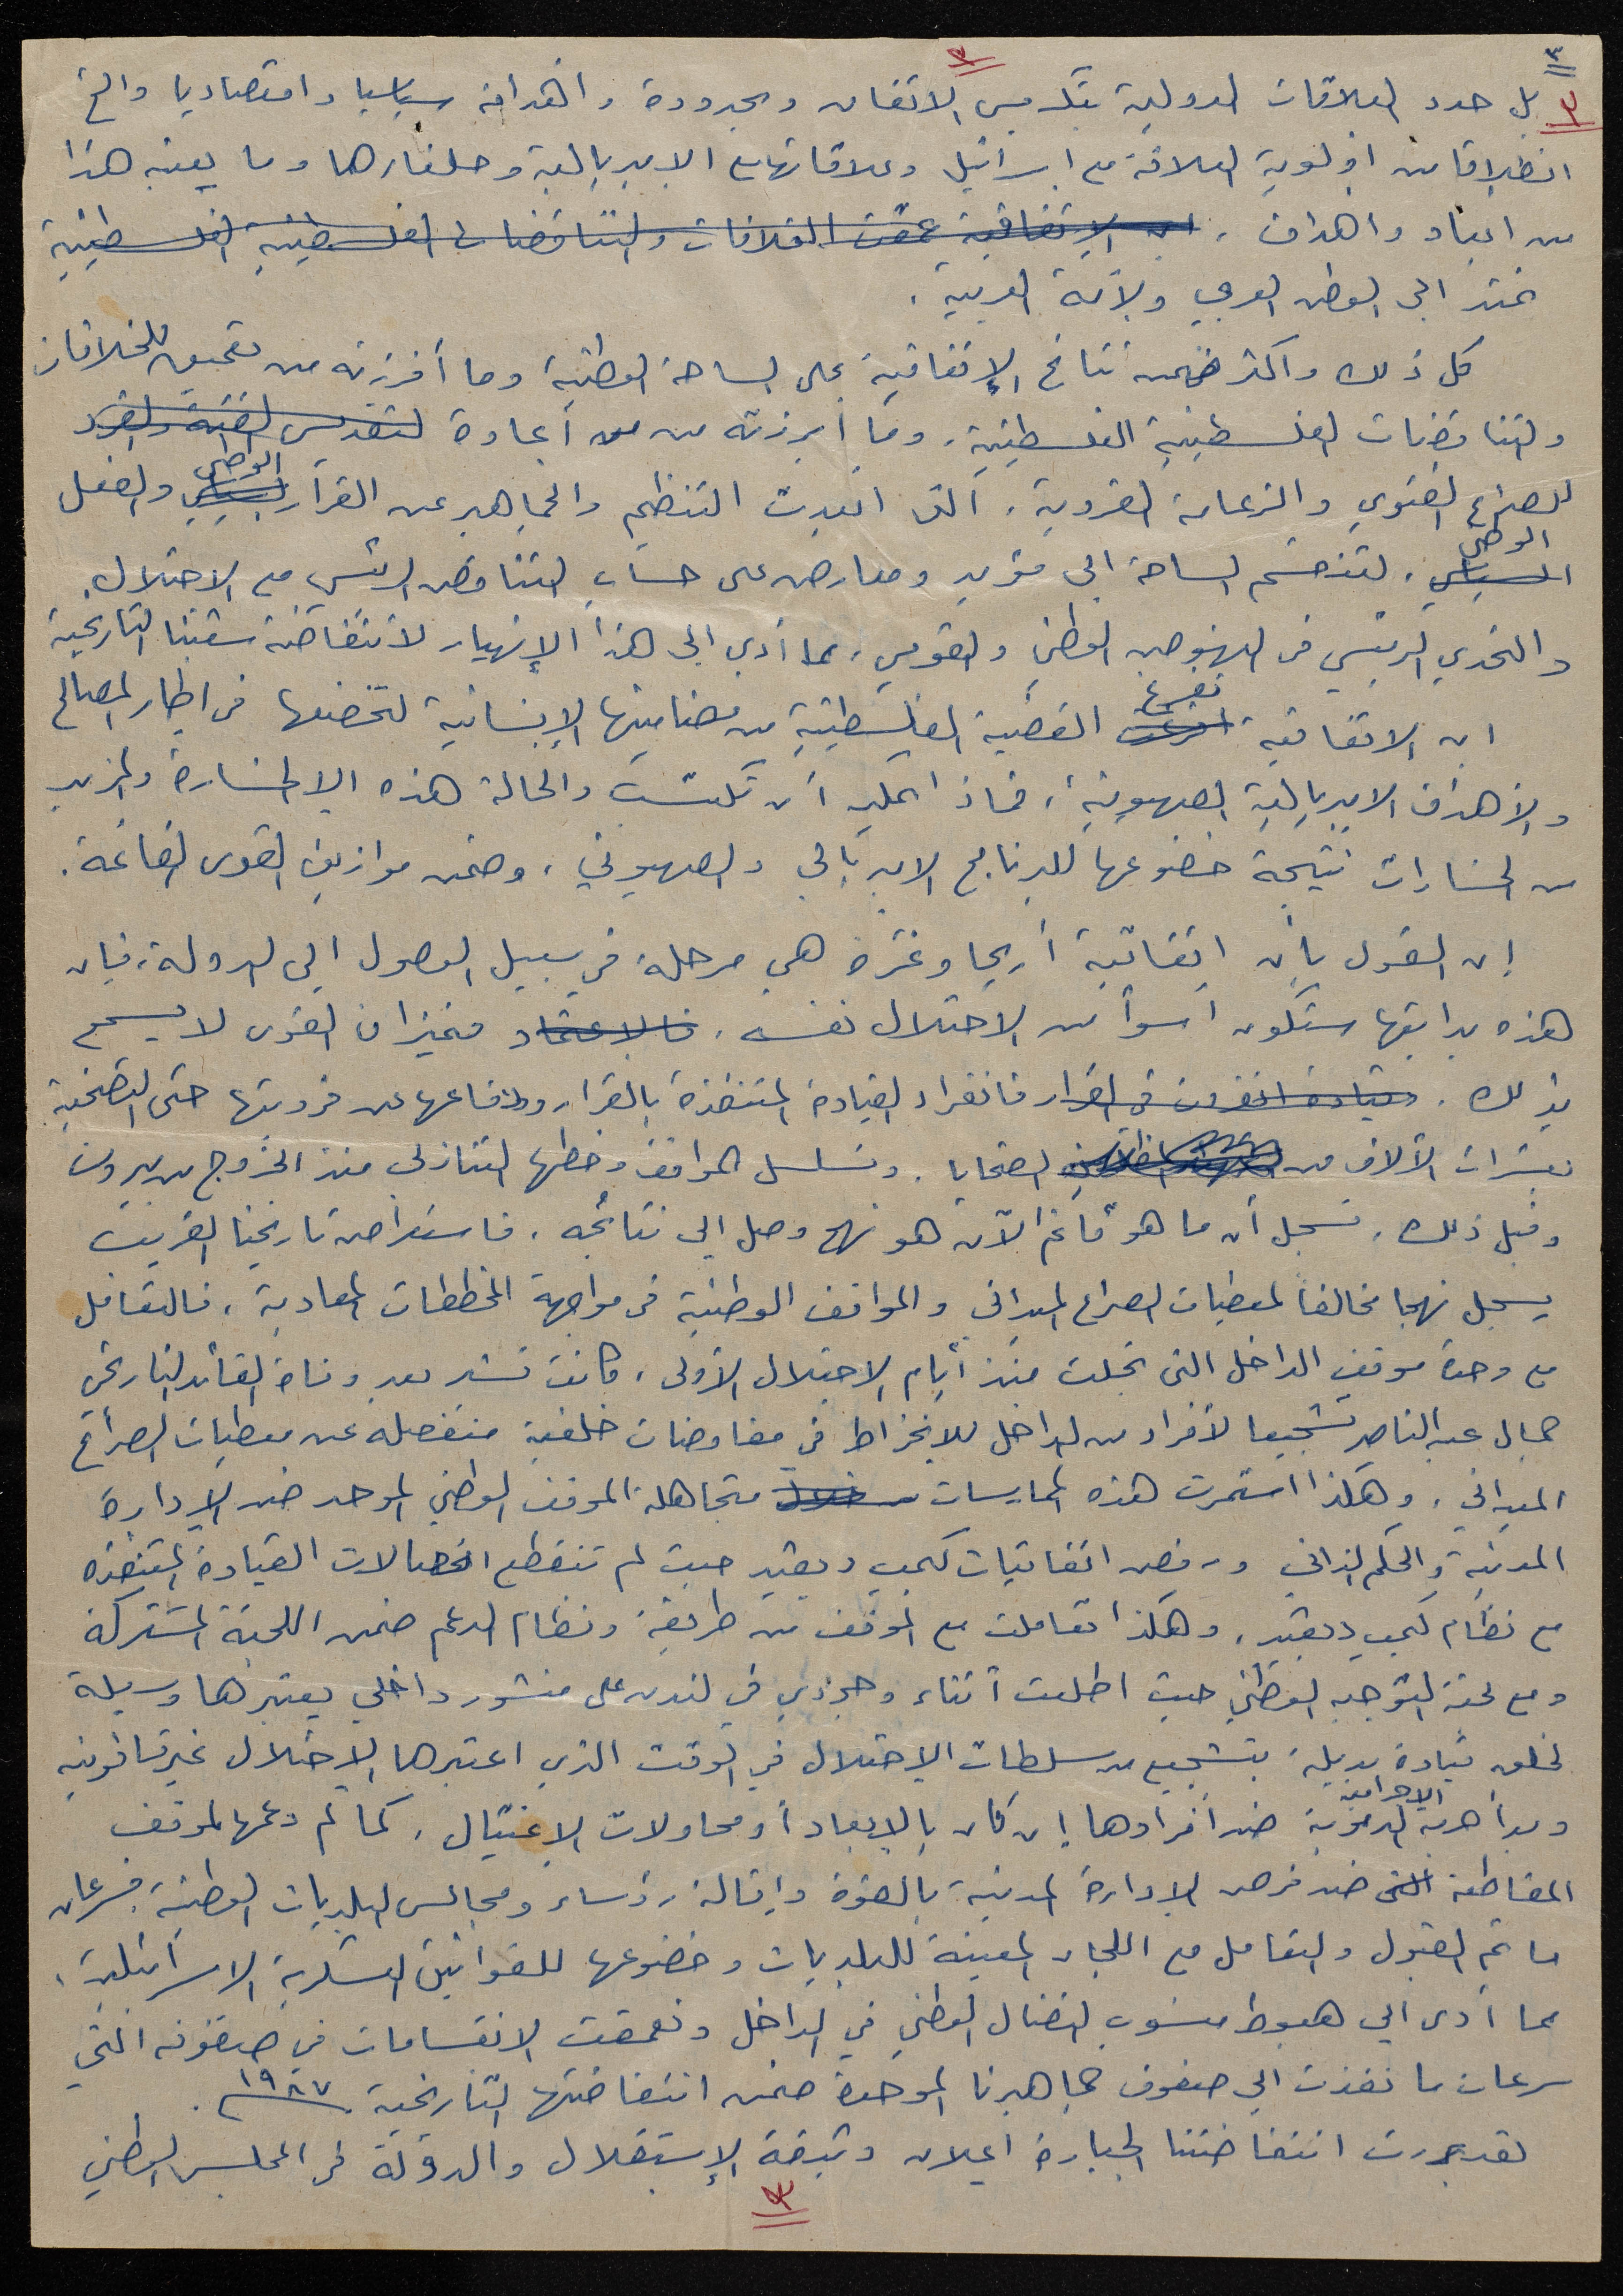 ٣ ٣
٣ بل حدد العلاقات الدولية بتكريس الاتفاق وبحدوده وأهدافه سياسيا واقتصاديا والخ
انطلاقا من اولوية العلاقة مع اسرائيل وعلاقاتها مع الامبريالية وحلفاءها وما يعنيه هذا
من ابعاد واهداف . ان الاتفاقية عمقت الخلافات والتناقضات الفلسطينية الفلسطينية
تمتد الى الوطن العربي والأمة العربية .
كل ذلك واكثر ضمن نتائج الإتفاقية على الساحة الوطنية وما أفرزته من تعميق للخلافات
والتناقضات الفلسطينية الفلسطينية . وما أبرزته من أعادة لتقديس الفئة والفرد
للصراع الفئوي والزعامة الفردية . التي ابعدت التنظيم والجماهير عن القرار السياسي الوطني والفعل
السياسي الوطني ، لتنقسم الساحة الى مؤيد ومعارض على حساب التناقض الرئيسي مع الاحتلال .
والتحدي الرئيسي في النهوض الوطني والقومي ، مما أدى الى هذا الإنهيار لأنتفاضة شعبنا التاريخية
ان الاتفاقية افرغت تفرغ القضية الفلسطينية من مضامينها الإنسانية لتخضعها في اطار المصالح
والأهداف الامبريالية الصهيونية ، فماذا يمكن أن تكتسب والحالة هذه الا الخسارة والمزيد
من الخسارات نتيجة خضوعها للبرنامج الامبريالي والصهيوني ، وضمن موازين القوى القائمة .
إن القول بأن اتفاقية أريحا وغزة هي مرحلة في سبيل الوصول الى الدولة ، فإن
هذه بدايتها ستكون اسوأ من الاحتلال نفسه . فالاعتماد فميزان القوى لا يسمح
بذلك . فانفراد القيادة المتنفذة بالقرار ودفاعها عن فرديتها حتى التضحية
بعشرات الألاف من الضحايا . وتسلسل المواقف وخطها التنازلي منذ الخروج من بيروت
وقبل ذلك ، تسجل أن ما هو قائم الآن هو نهج وصل الى نتائجه . فاستعراض تاريخنا القريب
يسجل نهجا مخالفاً لمعطيات الصراع الميداني والمواقف الوطنية في مواجهة المخططات المعادية ، فالتعامل
مع وحدة موقف الداخل التي تجلت منذ أيام الاحتلال الأولى ، كانت تشهد بعد وفاة القائد التاريخي
جمال عبد الناصر تشجيعا لأفراد من الداخل للانخراط في مفاوضات خلفية منفصله عن معطيات الصراع
الميداني . وهكذا استمرت هذه الممارسات متجاهلة الموقف الوطني الموحد ضد الإدارة
المدنية والحكم الذاتي ورفض اتفاقيات كمب ديفيد حيث لم تنقطع اتصالات القيادة المتنفذه
مع نظام كمب ديفيد ، وهكذا تعاملت مع الموقف من طريقة ونظام الدعم ضمن اللجنة المشتركة
ومع لجنة التوجيه الوطني حيث اطلعت أثناء وجودي في لندن على منشور داخلي يعتبرها وسيلة
لخلق قيادة بديلة بتشجيع من سلطات الاحتلال في الوقت الذي اعتبرها الاحتلال غير قانونيه
وبدأ حربه الدموية الاجرامية ضد أفرادها إن كان بالإبعاد أو محاولات الإغتيال . كما تم دعمها لموقف
المقاطعة ضد فرض الإدارة المدنية بالقوة وإقالة رؤساء ومجالس البلديات الوطنية ، فسرعان
ما تم القبول والتعامل مع اللجان المعينة للبلديات وخضوعها للقوانين العسكرية الاسرائيلية ،
مما أدى الى هبوط منسوب النضال الوطني في الداخل وتعمقت الانقسامات في صفوفه التي
سرعان ما نفذت الى صفوف جماهيرنا الموحدة ضمن انتفاضتها التاريخية ١٩٨٧ .
لقد بررت انتفاضتنا الجبارة اعلان وثيقة الإستقلال والدولة في المجلس الوطني
٣